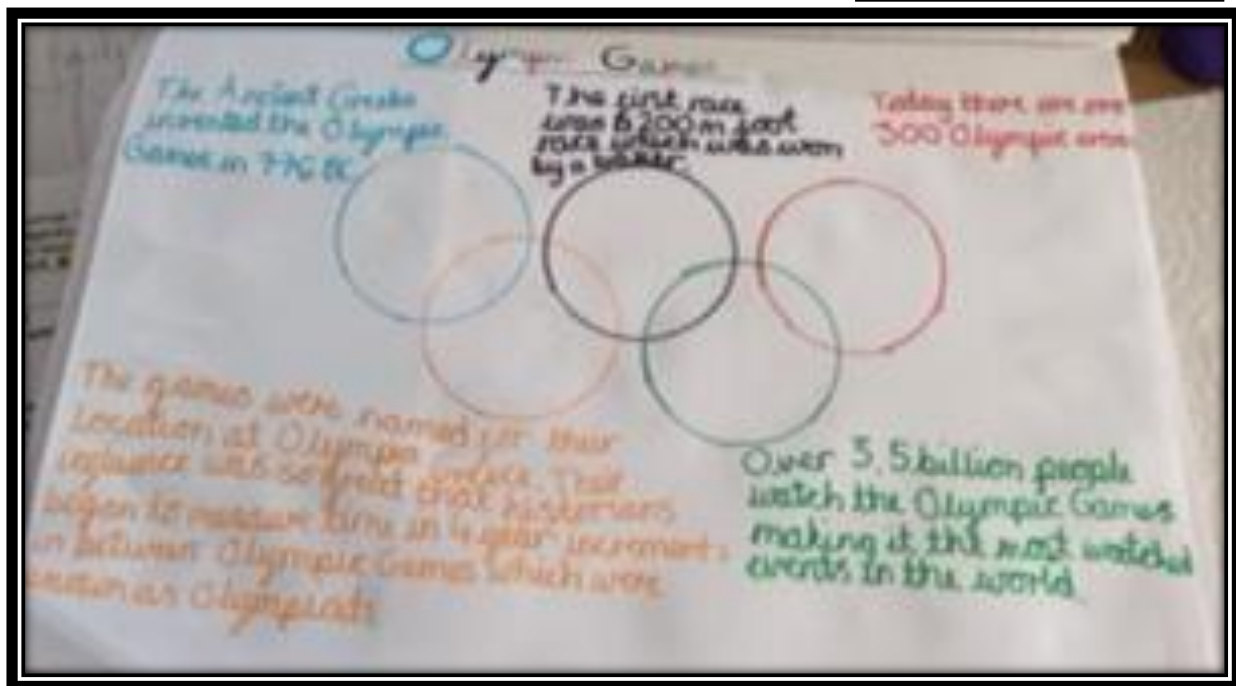 Olympic Games
The Ancient Greeks
invented the Olympic
Games in 776 BC
The first race
was a 200m foot
race which was won
by a baker.
Today there are
300 Olympic
The games were named for their
Location at Olympia
influence was so great that historians
began to measure time in 4 year increments
in between Olympic Games which were
known as Olympiads
Over 3.5 billion people
watch the Olympic Games
making it the most watched
events in the world